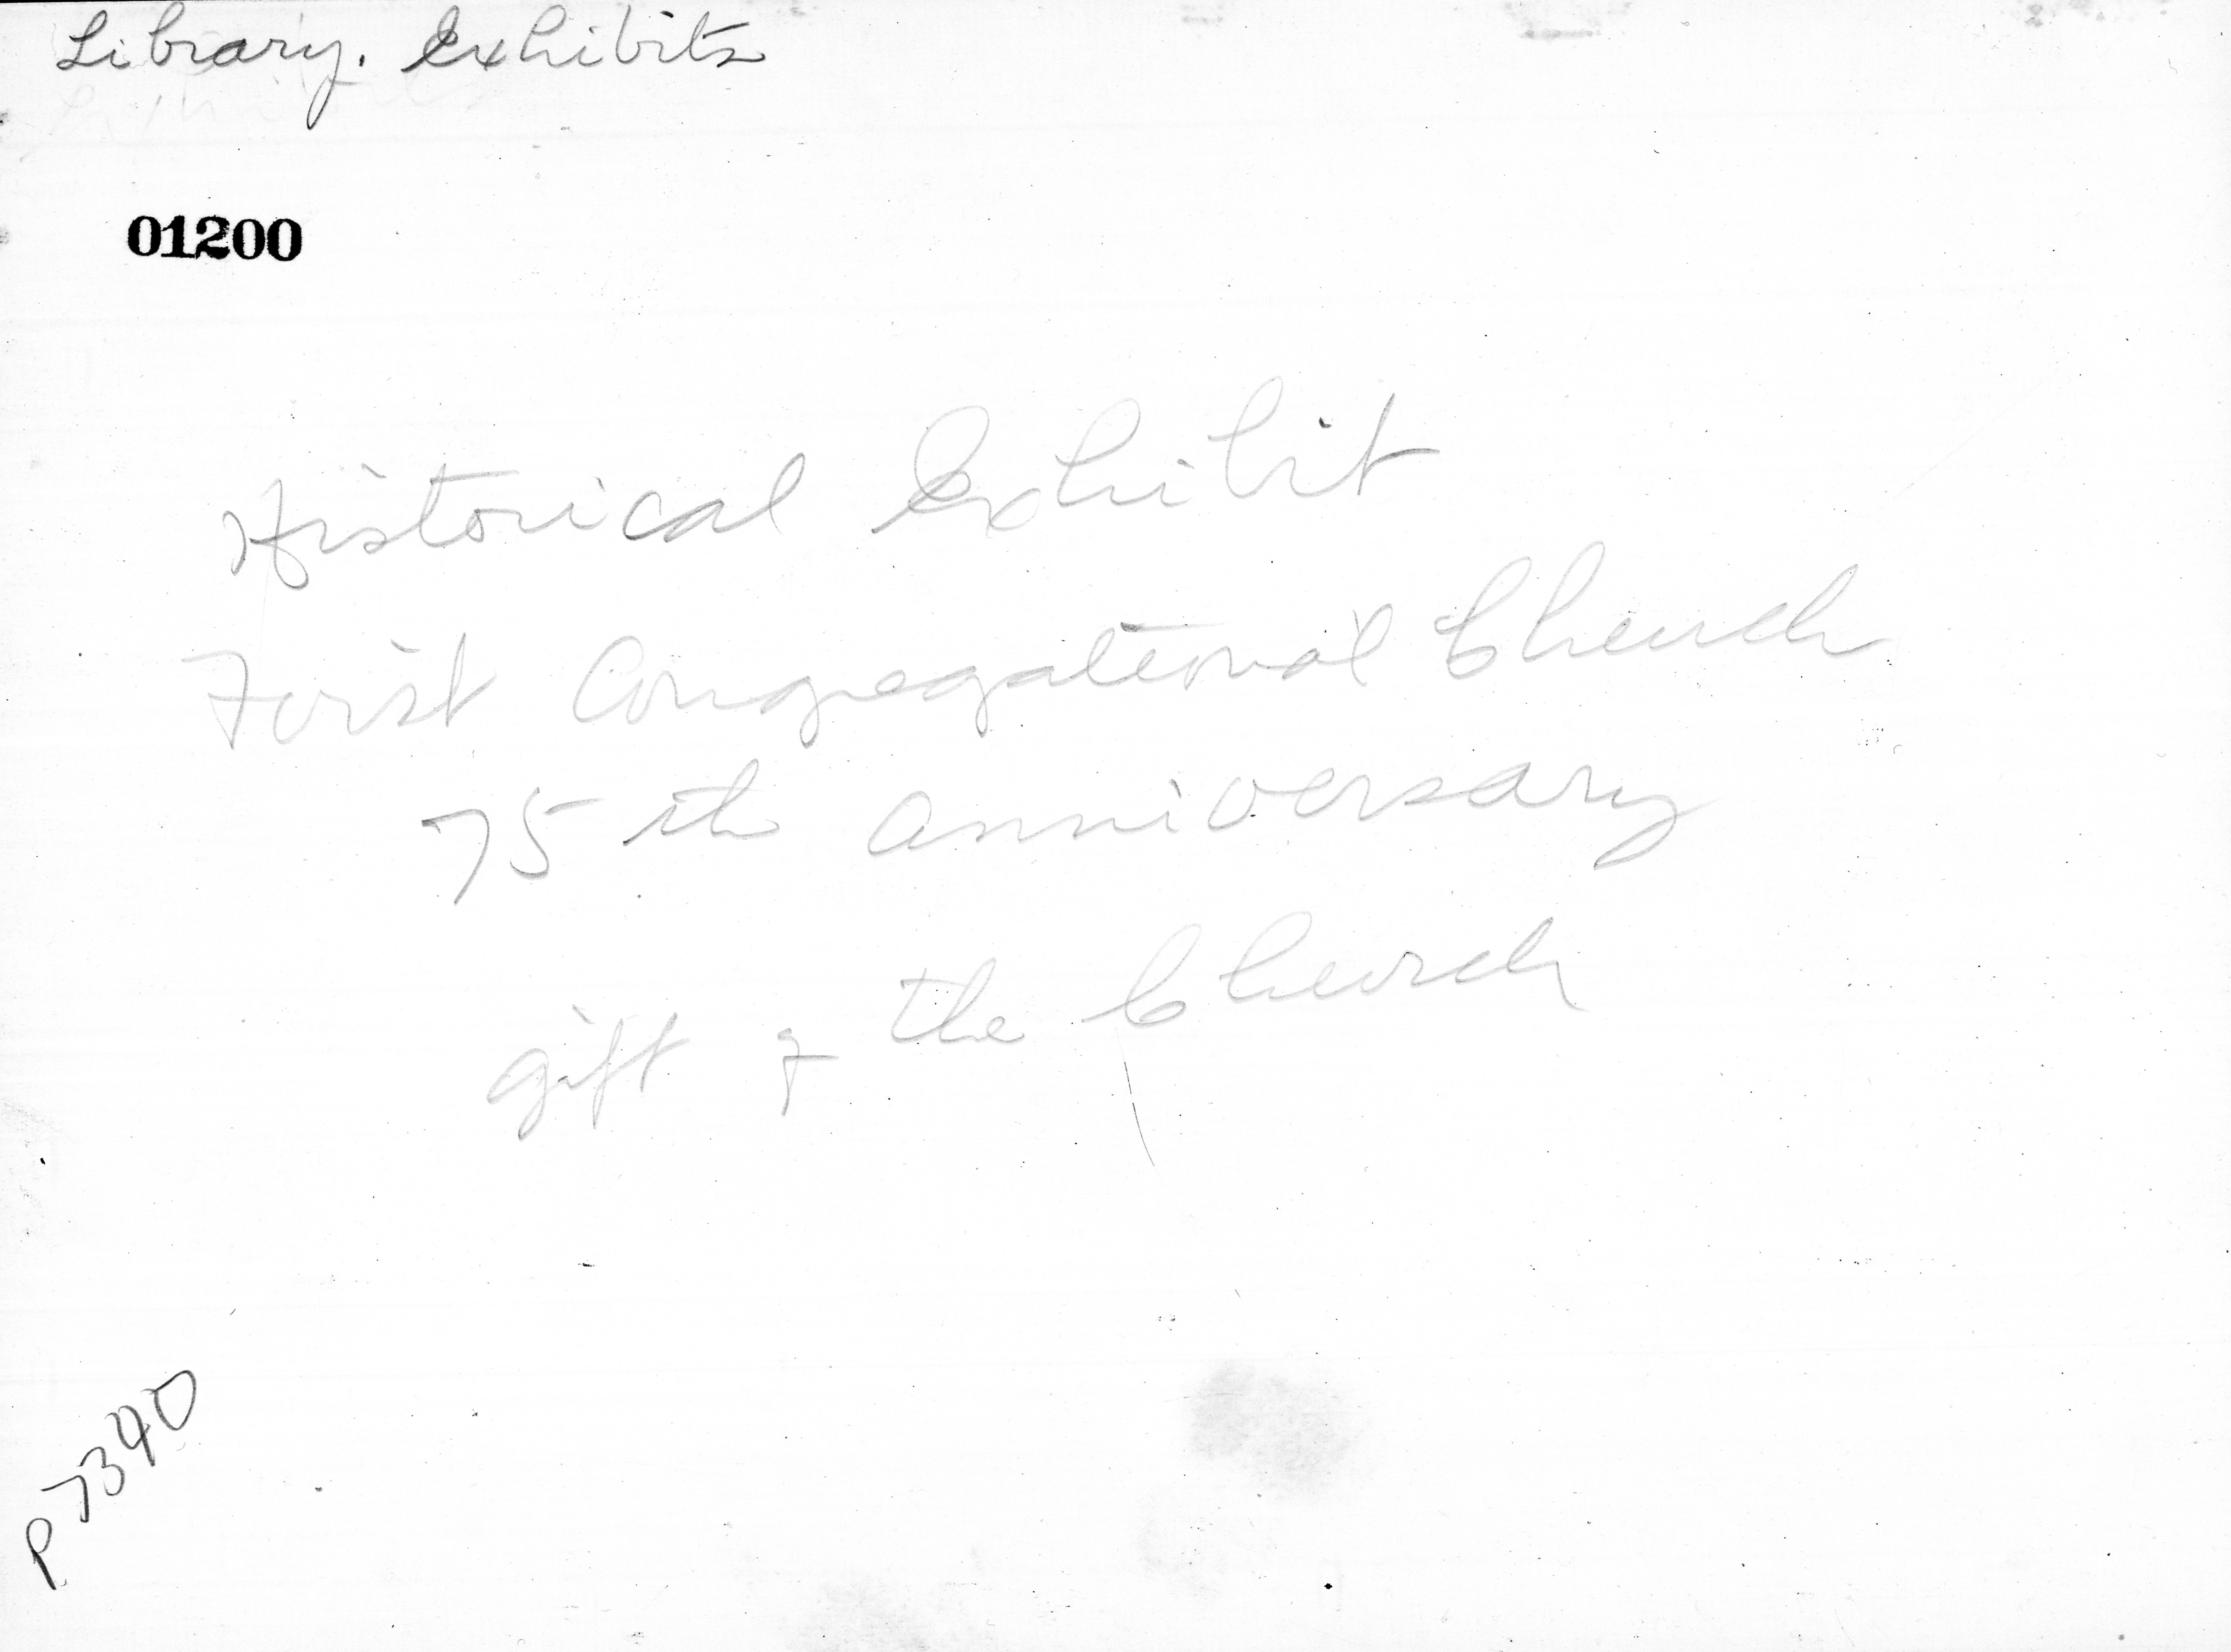 Library. Exhibits
01200
Historical Exhibit
First Congregational Church
75th anniversary
gift of the Church
P7340